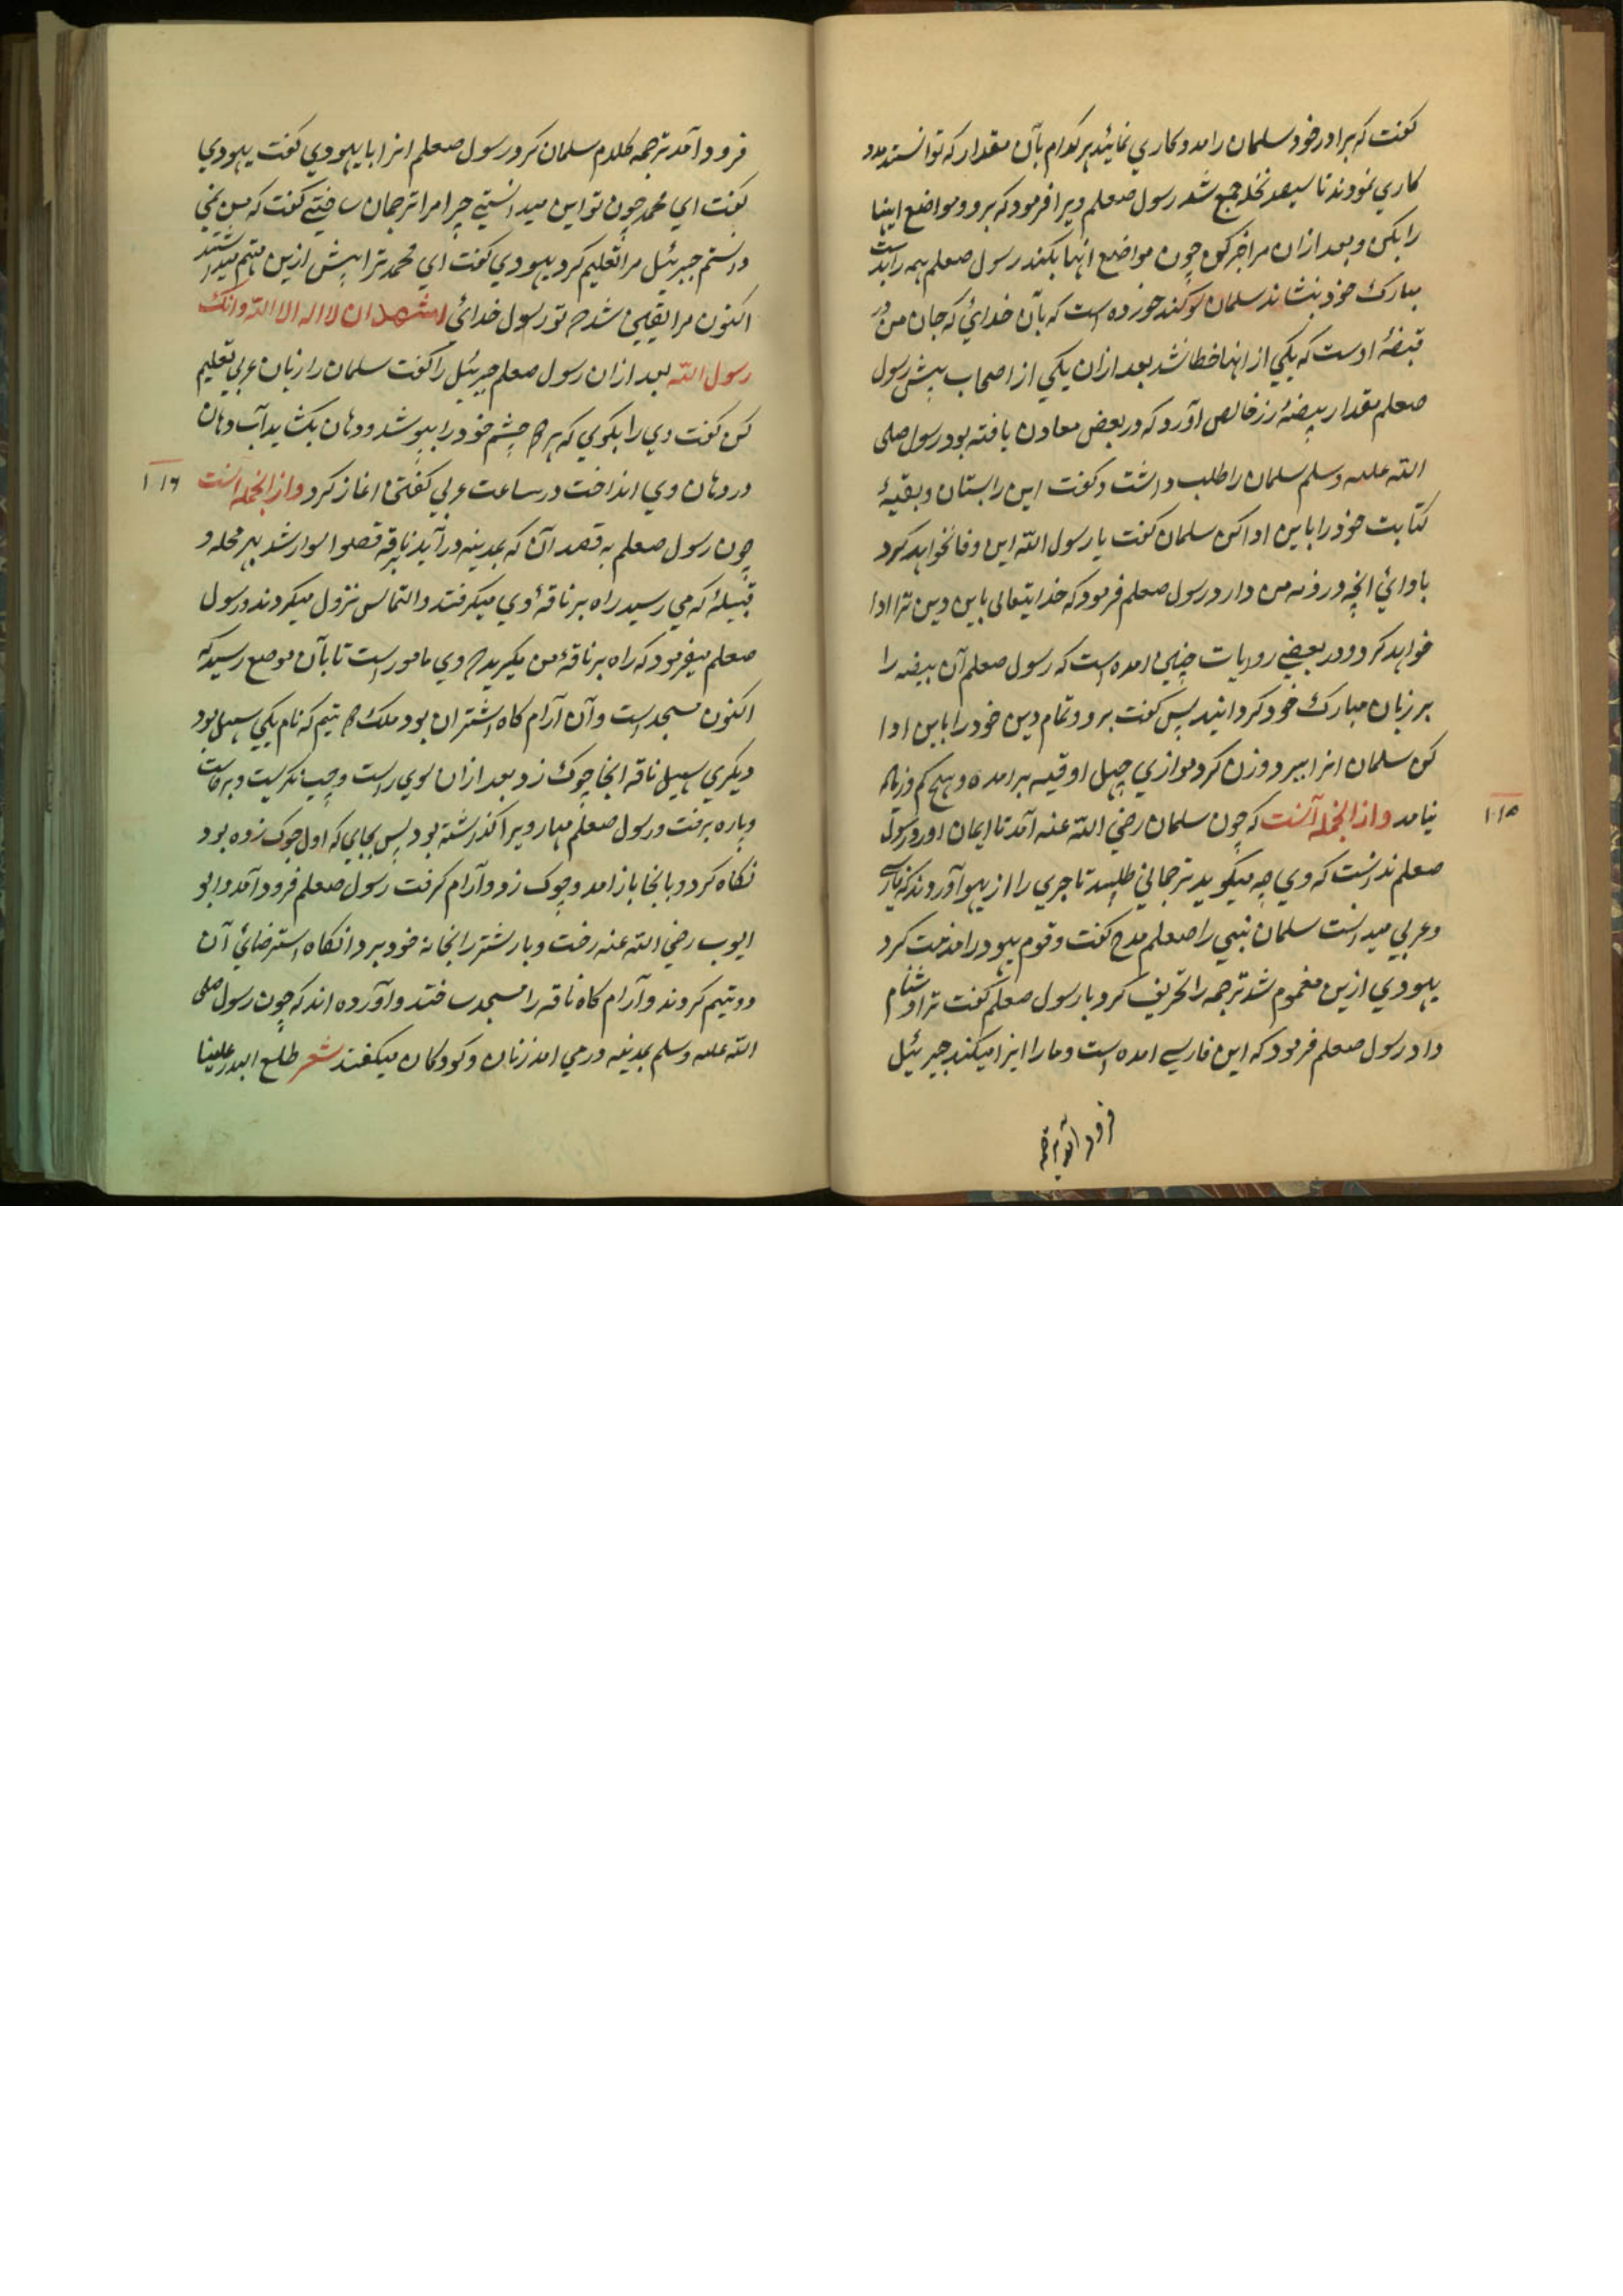 گفت که برادر خود سلمان را مددکاري نمائید هر کدام بآن مقدار که توانستند مدد
کاري نمودند تا سیصد نخله جمع شد رسول صعلم ویرا فرمود که برو و مواضع اینها
را بکن و بعد ازان مرا خبر کن چون مواضع انها بکند رسول صعلم همه را بدست
مبارک خود بنشاند سلمان سوکند خورده است که بآن خدائي که جان من در
قبضهٔ اوست که یکي از انها خطا نشد بعد ازان یکي از اصحاب پیش رسول
صعلم مقدار بیضهٔ زر خالص آورد که در بعض معادن یافته بود رسول صلی
الله علیه وسلم سلمان را طلب داشت و گفت این را بستان و بقیهٔ
کتابت خود را باین ادا کن سلمان گفت یا رسول الله این وفا نخواهد کرد
باداي انچه در ذمه من دارد رسول صعلم فرمود که خدایتعالی باین دین ترا ادا
خواهد کرد و در بعضے روایات چنین امده است که رسول صعلم آن بیضه را
بر زبان مبارک خود کردانید پس گفت برو و تمام دین خود را باین ادا
کن سلمان انرا ببرد و وزن کرد موازي چهل اوقیه برامده و هیچ کم و زیاده
نیامد و از انجمله آنست که چون سلمان رضي الله عنه آمد تا ایمان اورد رسول
۱۱۵
صعلم ندانست که وي چه میگوید ترجماني طلبید تاجري را از یهود آوردند که پارسے
و عربي میدانست سلمان نبي را صعلم مدح گفت و قوم یهود را مذمت کرد
یهودي ازین مغموم شد ترجمه را تحریف کرد با رسول صعلم گفت ترا دشنام
داد رسول صعلم فرمود که این فارسے امده است و ما را ایذا میکند جبرئیل
فرود آمد ترجمه
فرود آمد ترجمه کلام سلمان کرد رسول صعلم انرا با یهودي گفت یهودي
گفت اي محمد چون تو این میدانستے چرا مرا ترجمان ساختے گفت که من نمي
دانستم جبرئیل مرا تعلیم کرد یهودي گفت اي محمد ترا پیش ازین متهم میداشتم
اکنون مرا یقین شد که تو رسول خدائي اشهد ان لا اله الا الله وانک
رسول الله بعد ازان رسول صعلم جبرئیل را گفت سلمان را زبان عربي تعلیم
کن گفت وي را بگوي که هر دو چشم خود را بپوشد و دهان بکشاید آب دهان
در دهان وي انداخت در ساعت عربي گفتن اغاز کرد و از انجمله انست
۱۱۶
چون رسول صعلم به قصد آن که بمدینه در آید بناقه قصوا سوار شد بهر محله و
قبیلهٔ که مي رسید راه بر ناقهٔ وي میکرفتند و التماس نزول میکردند و رسول
صعلم میفرمود که راه بر ناقهٔ من مکیرید که وي مامور است تا بآن موضع رسید که
اکنون مسجد است و آن آرام کاه اشتران بود ملک دو یتیم که نام یکي سهل بود
دیکري سهیل ناقه انجا چوک زد بعد ازان سوي راست و چپ نکریست و برخاست
و پاره برفت و رسول صعلم مهار ویرا کذاشته بود پس بجاي که اول چوک زده بود
نکاه کرد و بانجا باز امد و چوک زد و آرام کرفت رسول صعلم فرود آمد و ابو
ایوب رضي الله عنه رخت و بار شتر را بخانه خود برد انکاه استرضاي آن
دو یتیم کردند و آرام کاه ناقه را مسجد ساختند و آورده اند که چون رسول صلی
الله علیه وسلم بمدینه در مي امد زنان و کودکان میکفتند شعر طلع البدر علینا